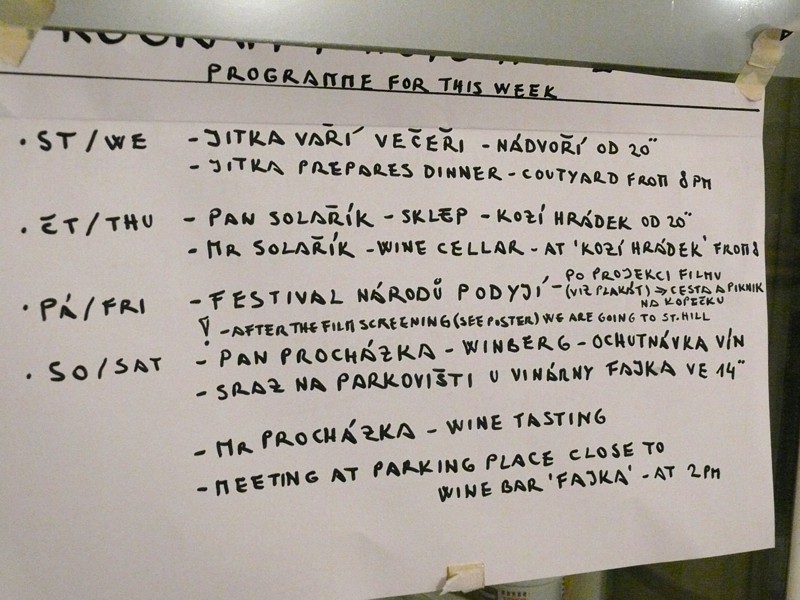 PROGRAMME FOR THIS WEEK
• ST/WE - JITKA VAŘÍ VEČEŘI - NÁDVOŘÍ OD 20ºº
- JITKA PREPARES DINNER - COUTYARD FROM 8 PM
• ČT/THU - PAN SOLAŘÍK - SKLEP - KOZÍ HRÁDEK OD 20ºº
- MR SOLAŘÍK - WINE CELLAR - AT 'KOZÍ HRÁDEK' FROM 8
• PÁ/FRI - FESTIVAL NÁRODŮ PODYJÍ - PO PROJEKCI FILMU
(VIZ PLAKÁT) → CESTA A PIKNIK
NA KOPEČKU
! - AFTER THE FILM SCREENING (SEE POSTER) WE ARE GOING TO ST. HILL
• SO/SAT - PAN PROCHÁZKA - WINBERG - OCHUTNÁVKA VÍN
- SRAZ NA PARKOVIŠTI U VINÁRNY FAJKA VE 14ºº
- MR PROCHÁZKA - WINE TASTING
- MEETING AT PARKING PLACE CLOSE TO
WINE BAR 'FAJKA' - AT 2 PM